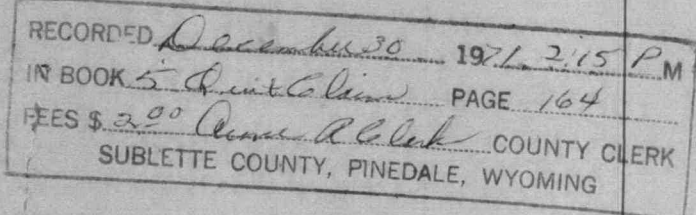 RECORDED December 30 1971 2:15 P M
IN BOOK 5 Quit Claim PAGE 164
FEES $ 2.00 COUNTY CLERK
SUBLETTE COUNTY, PINEDALE, WYOMING